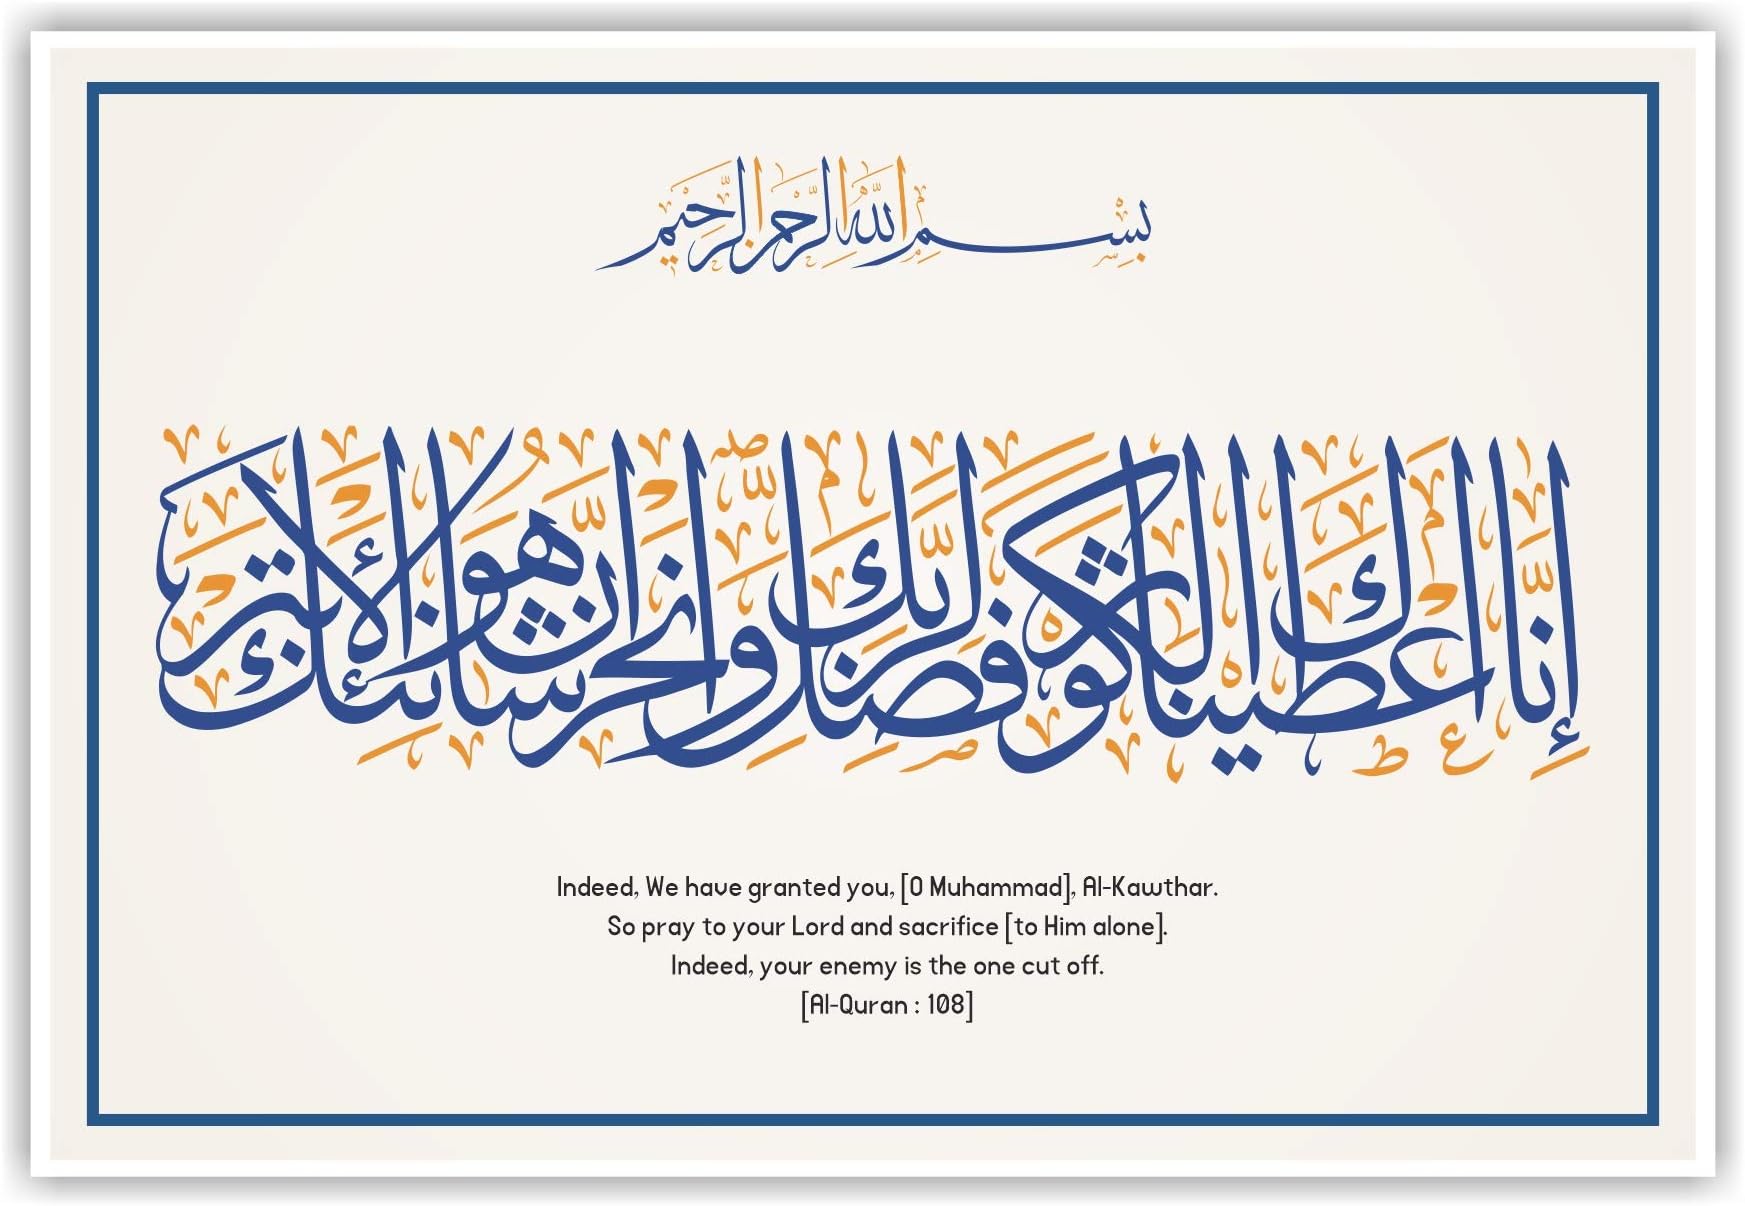 بِسْمِ اللَّهِ الرَّحْمَنِ الرَّحِيمِ
إِنَّا أَعْطَيْنَاكَ الْكَوْثَرَ فَصَلِّ لِرَبِّكَ وَانْحَرْ إِنَّ شَانِئَكَ هُوَ الْأَبْتَرُ
Indeed, We have granted you, [O Muhammad], Al-Kawthar.
So pray to your Lord and sacrifice [to Him alone].
Indeed, your enemy is the one cut off.
[Al-Quran : 108]